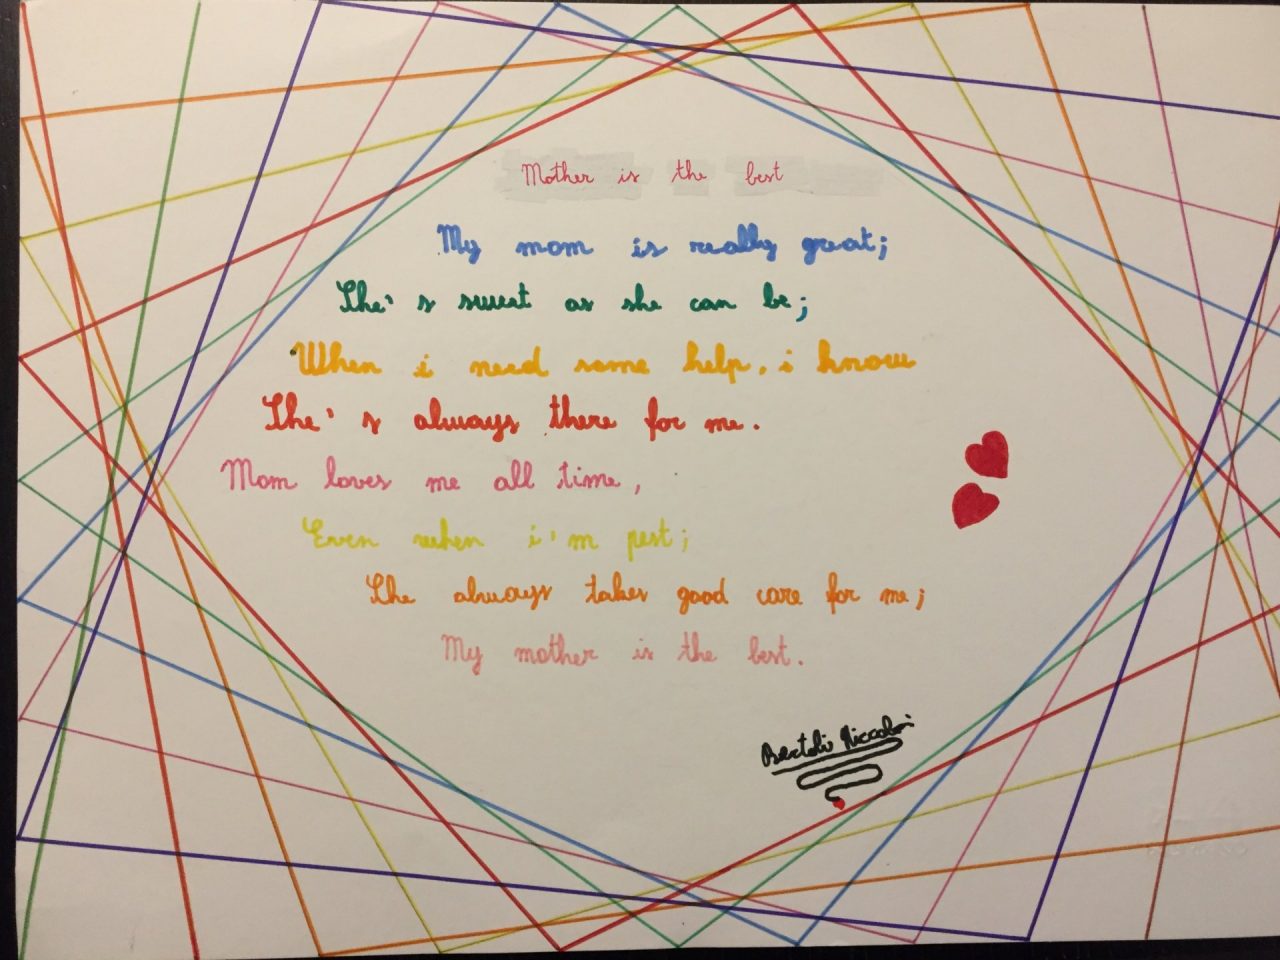 Mother is the best
My mom is really great;
She's sweet as she can be;
When i need some help, i know
She's always there for me.
Mom loves me all time,
Even when i'm pest;
She always takes good care for me;
My mother is the best.
Bertoli